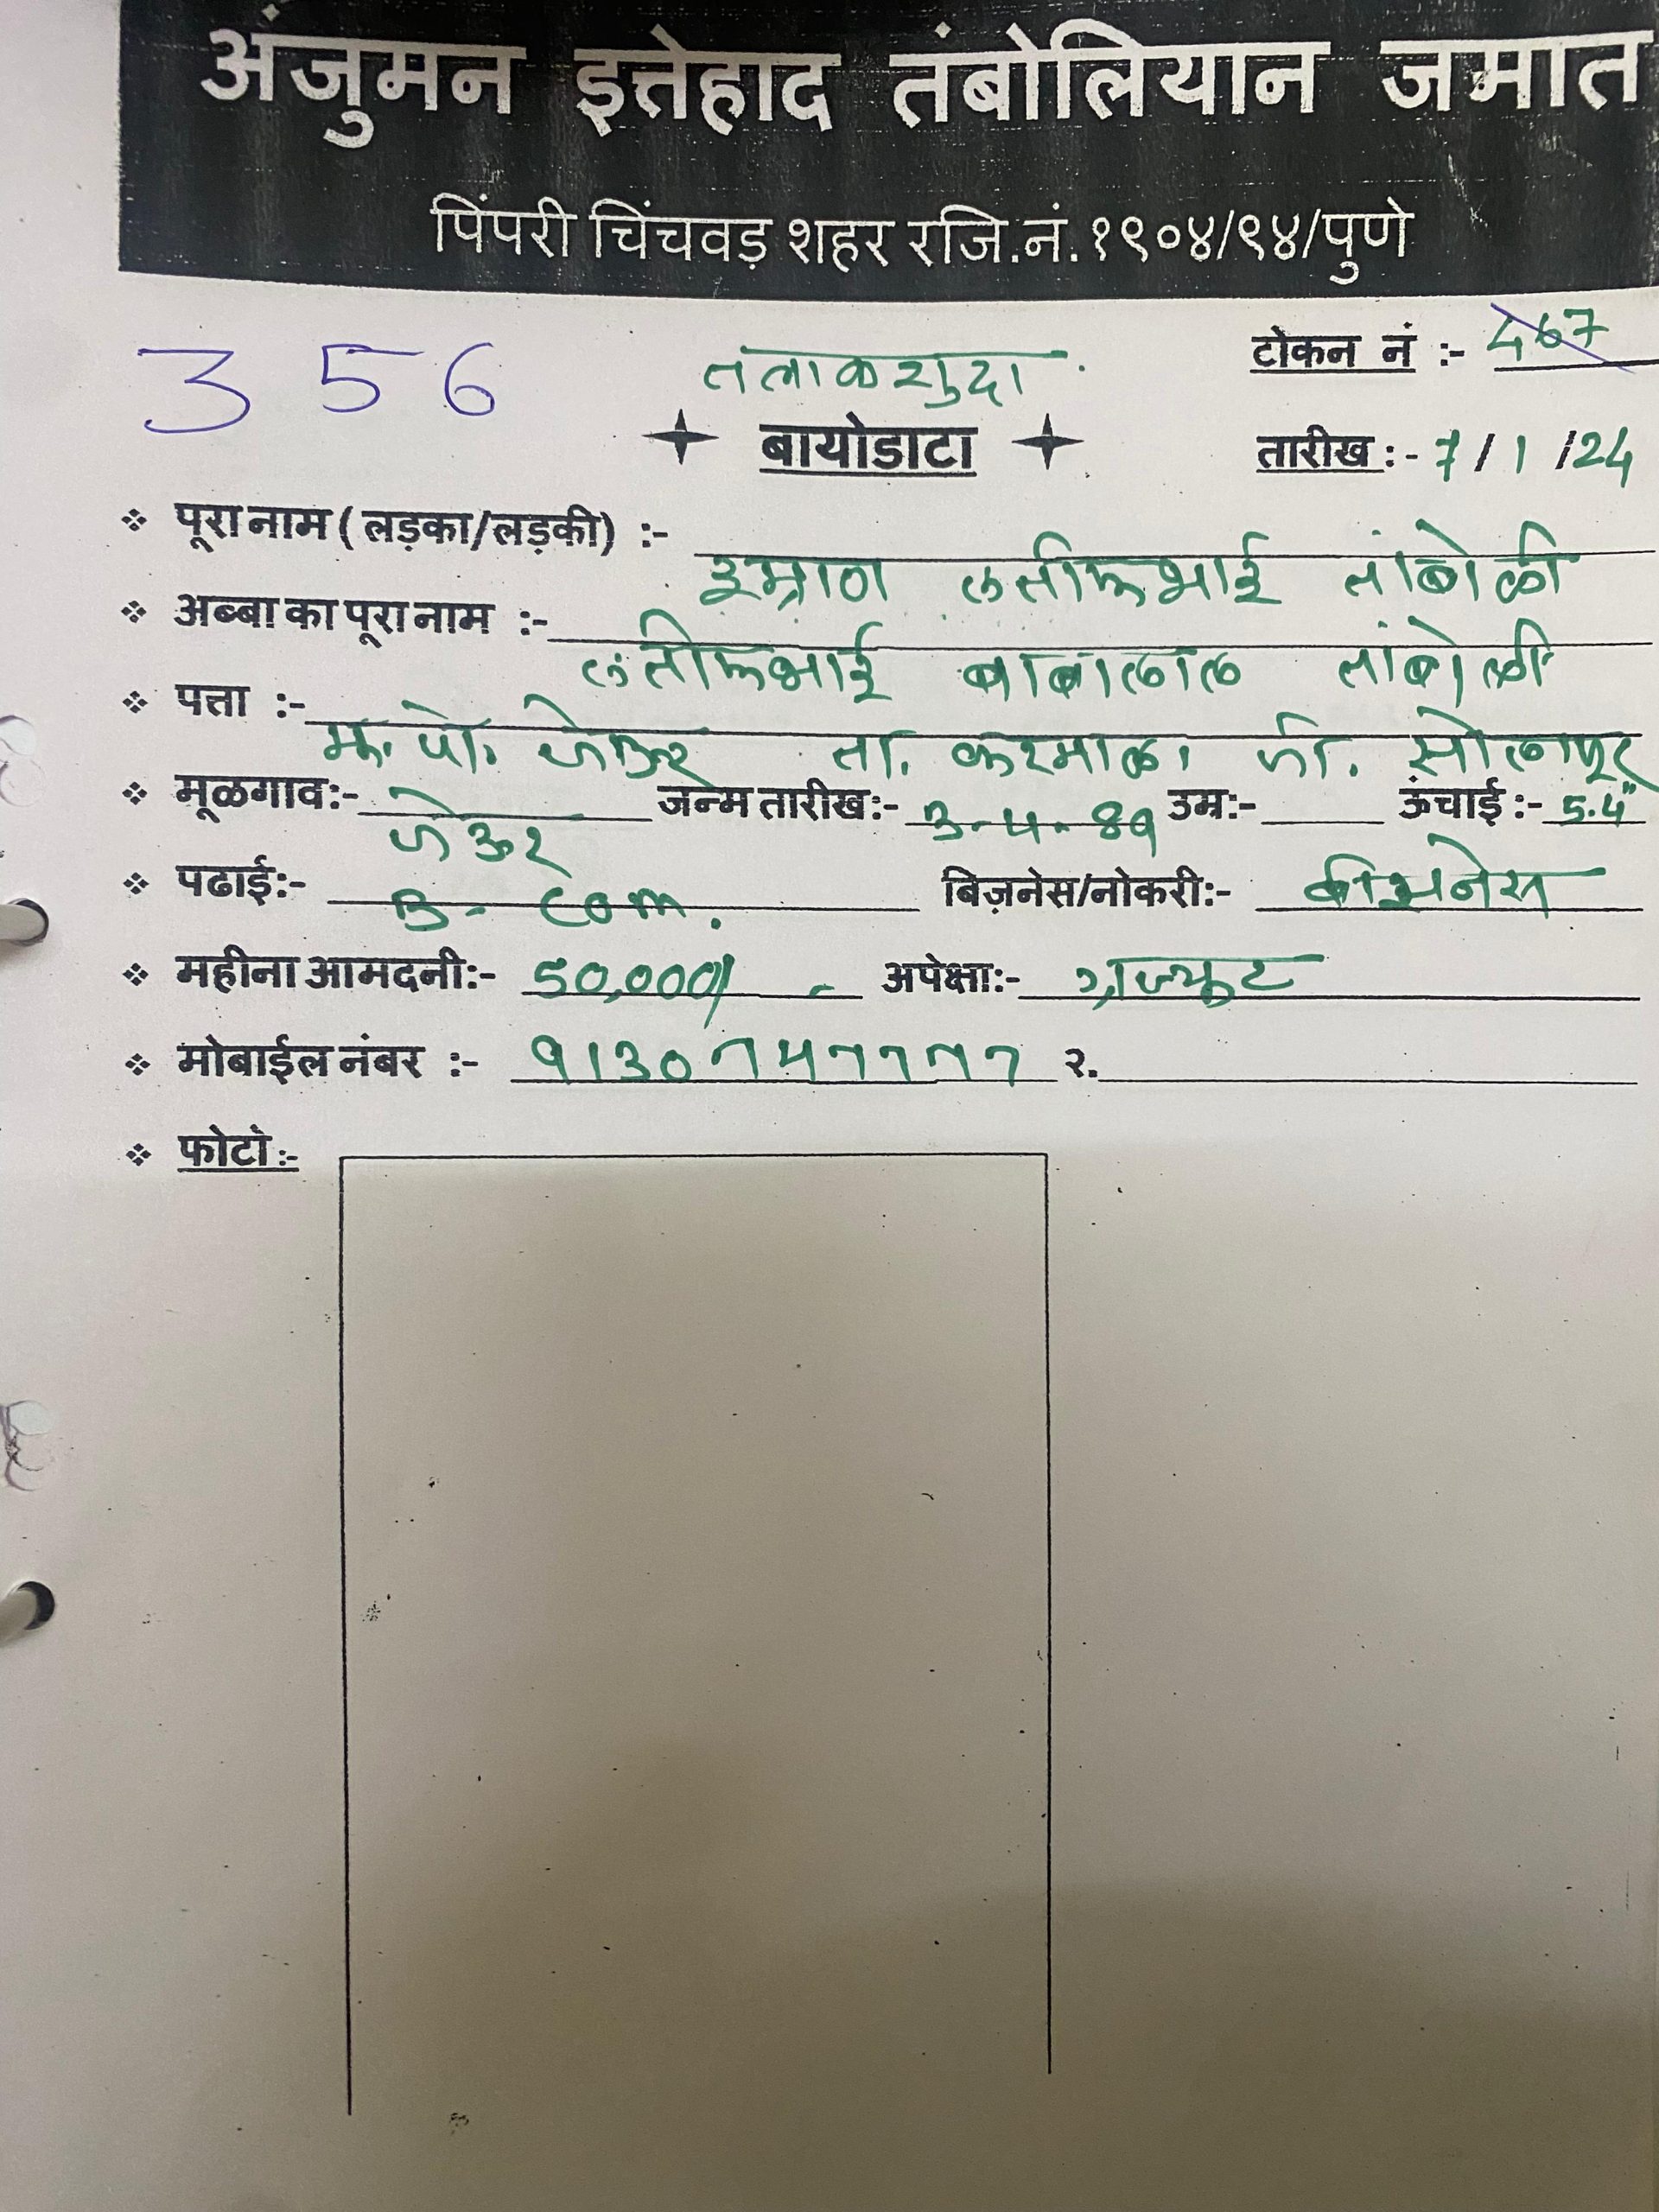 अंजुमन इत्तेहाद तंबोलियान जमात
पिंपरी चिंचवड़ शहर रजि.नं.१९०४/९४/पुणे
356 तलाकशुदा टोकन नं :- 467
बायोडाटा तारीख :- 7/1/24
पूरा नाम (लड़का/लड़की) :- इम्रान लतीफभाई तांबोळी
अब्बा का पूरा नाम :- लतीफभाई बाबालाल तांबोळी
पत्ता :- मु. पो. जेऊर ता. करमाळा जी. सोलापूर
मूळगाव:- जेऊर जन्म तारीख:- 3-4-89 उम्र:- ऊंचाई :- 5.4"
पढाई:- B-com. बिज़नेस/नोकरी:- बीझनेस
महीना आमदनी:- 50,000/- अपेक्षा:- ग्रज्यूट
मोबाईल नंबर :- 9130 २.
फोटो :-